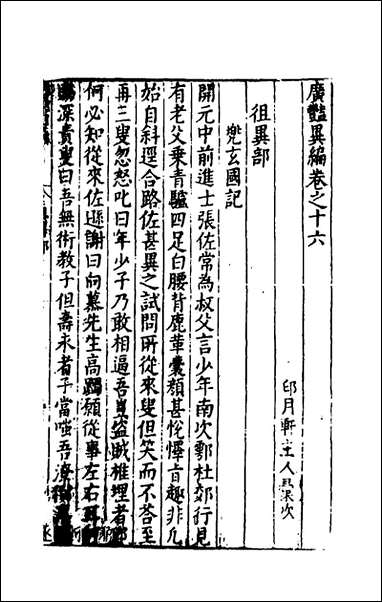 廣豔異編卷之十六
印月軒主人彙次
徂異部
兠玄國記
開元中前進士張佐常為叔父言少年南次鄠杜郊行見
有老父乘青驢四足白腰背鹿革囊顏甚悅懌旨趣非凡
始自斜徑合路佐甚異之試問所從來叟但笑而不荅至
再三叟忽怒叱曰年少子乃敢相逼吾豈盗賊椎埋者耶
何必知從來佐遜謝曰向慕先生高躅願從事左右耳何
深責叟曰吾無術教子但壽永者子當嗤吾潦倒